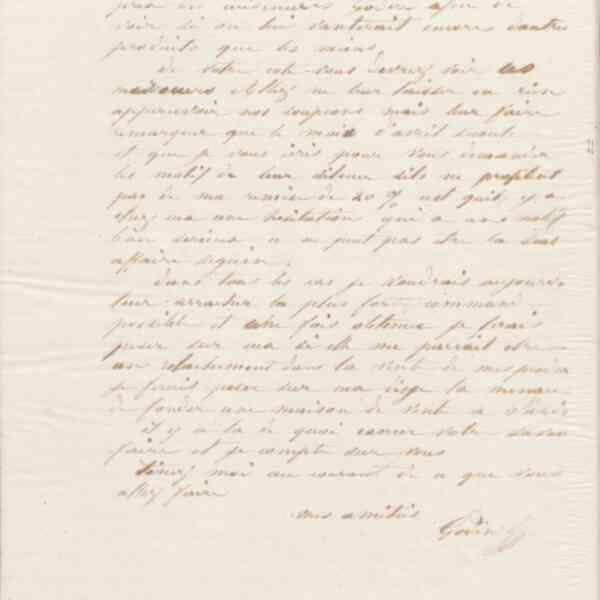 voir si on lui vanterait encore d'autres
produits que les miens
de votre coté vous devrez voir les
messieurs Allez ne leur laisser en rien
appercevoir nos soupcons mais leur faire
remarquer que le mois d'avril s'écoule
et que je vous écris pour vous demander
les motifs de leur silence s'ils ne profitent
pas de ma remise de 20 % c'est qu'il y a
chez eux une hésitation qui a un motif
bien sérieux ce ne peut pas être la
affaire Seguin.
dans tous les cas je voudrais aujourd'hui
leur arracher la plus forte commande
possible et une fois obtenue je ferais
peser sur eux si elle me parait être
un relachement dans la vente de mes produits
je ferais peser sur eux la menace
de fonder une maison de vente a Paris
il y a la de quoi exercer votre savoir
faire et je compte sur vous
Tenez moi au courant de ce que vous
allez faire
mes amitiés
Godin